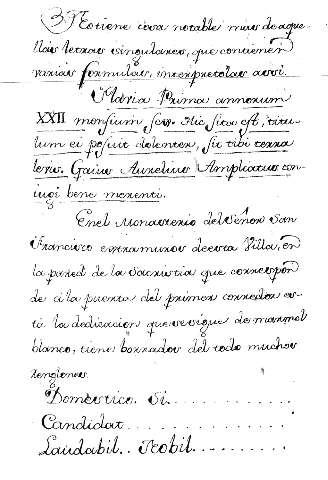 3 No tiene cosa notable mas de aque
llas letras singulares, que contienen
varias formulas, interpretolas assi.
Flavia Prima annorum
XXII mensium sex. Hic sita est, titu-
lum ei posuit dolenter, sit tibi terra
levis. Gaius Aurelius Ampliatus con-
iugi bene merenti.
En el Monasterio del Señor San
Francisco extramuros de esta Villa, en
la pared de la Sacristia que correspon
de a la puerta del primer corredor es-
tá la dedicacion que se sigue de marmol
blanco, tiene borrados del todo muchos
renglones.
Domestico. Si..............
Candidat................
Laudabil.. Nobil..........